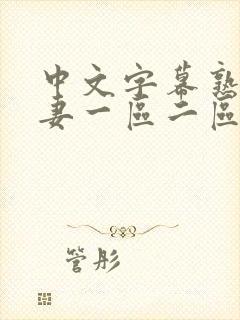 中文字幕熟
妻一區二區
管彤